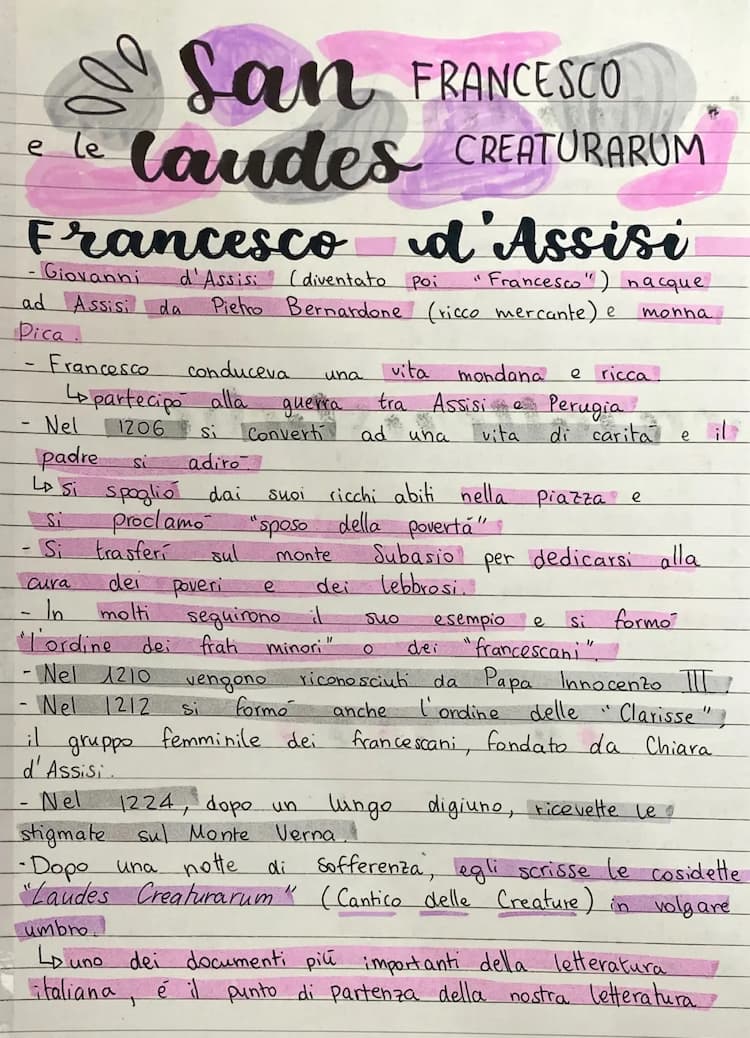 San FRANCESCO
e le laudes CREATURARUM
Francesco d'Assisi
- Giovanni d'Assisi (diventato poi "Francesco") nacque
ad Assisi da Pietro Bernardone (ricco mercante) e monna
Pica.
- Francesco conduceva una vita mondana e ricca.
↳ partecipò alla guerra tra Assisi e Perugia
- Nel 1206 si convertì ad una vita di carità e il
padre si adirò.
↳ Si spogliò dai suoi ricchi abiti nella piazza e
si proclamò "sposo della povertà"
- Si trasferì sul monte Subasio per dedicarsi alla
cura dei poveri e dei lebbrosi.
- In molti seguirono il suo esempio e si formò
"l'ordine dei frati minori" o dei "francescani".
- Nel 1210 vengono riconosciuti da Papa Innocenzo III.
- Nel 1212 si formò anche l'ordine delle "Clarisse",
il gruppo femminile dei francescani, fondato da Chiara
d'Assisi.
- Nel 1224, dopo un lungo digiuno, ricevette le
stigmate sul Monte Verna.
- Dopo una notte di sofferenza, egli scrisse le cosidette
"Laudes Creaturarum" (Cantico delle Creature) in volgare
umbro.
↳ uno dei documenti più importanti della letteratura
italiana, é il punto di partenza della nostra letteratura